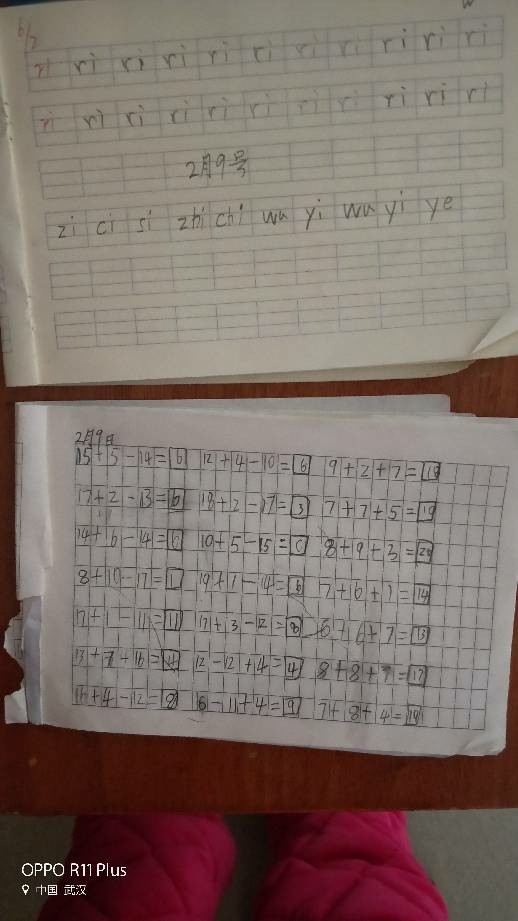 6/2
ri ri ri ri ri ri ri ri ri ri ri
ri ri ri ri ri ri ri ri ri ri ri
2月9号
zi ci si zhi chi wu yi wu yi ye
2月9日
15+5-14=6 12+4-10=6 9+2+7=18
17+2-13=6 18+2-17=3 7+7+5=19
14+16-14= 10+5-15=0 8+9+3=20
8+10-17=1 19+1-14=6 7+6+1=14
17+3-12=8 6+6+7=13
12-12+4=4 8+8+1=17
16+4-12=8 16-11+4=9 7+8+4=19
OPPO R11 Plus
中国 武汉